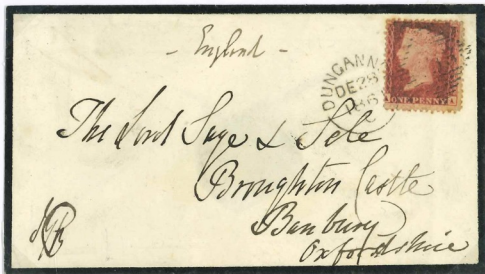 - England -
DUNGANN
DE 28
186
ONE PENNY
A
The Lord Saye & Sele
Broughton Castle
Banbury
Oxfordshire